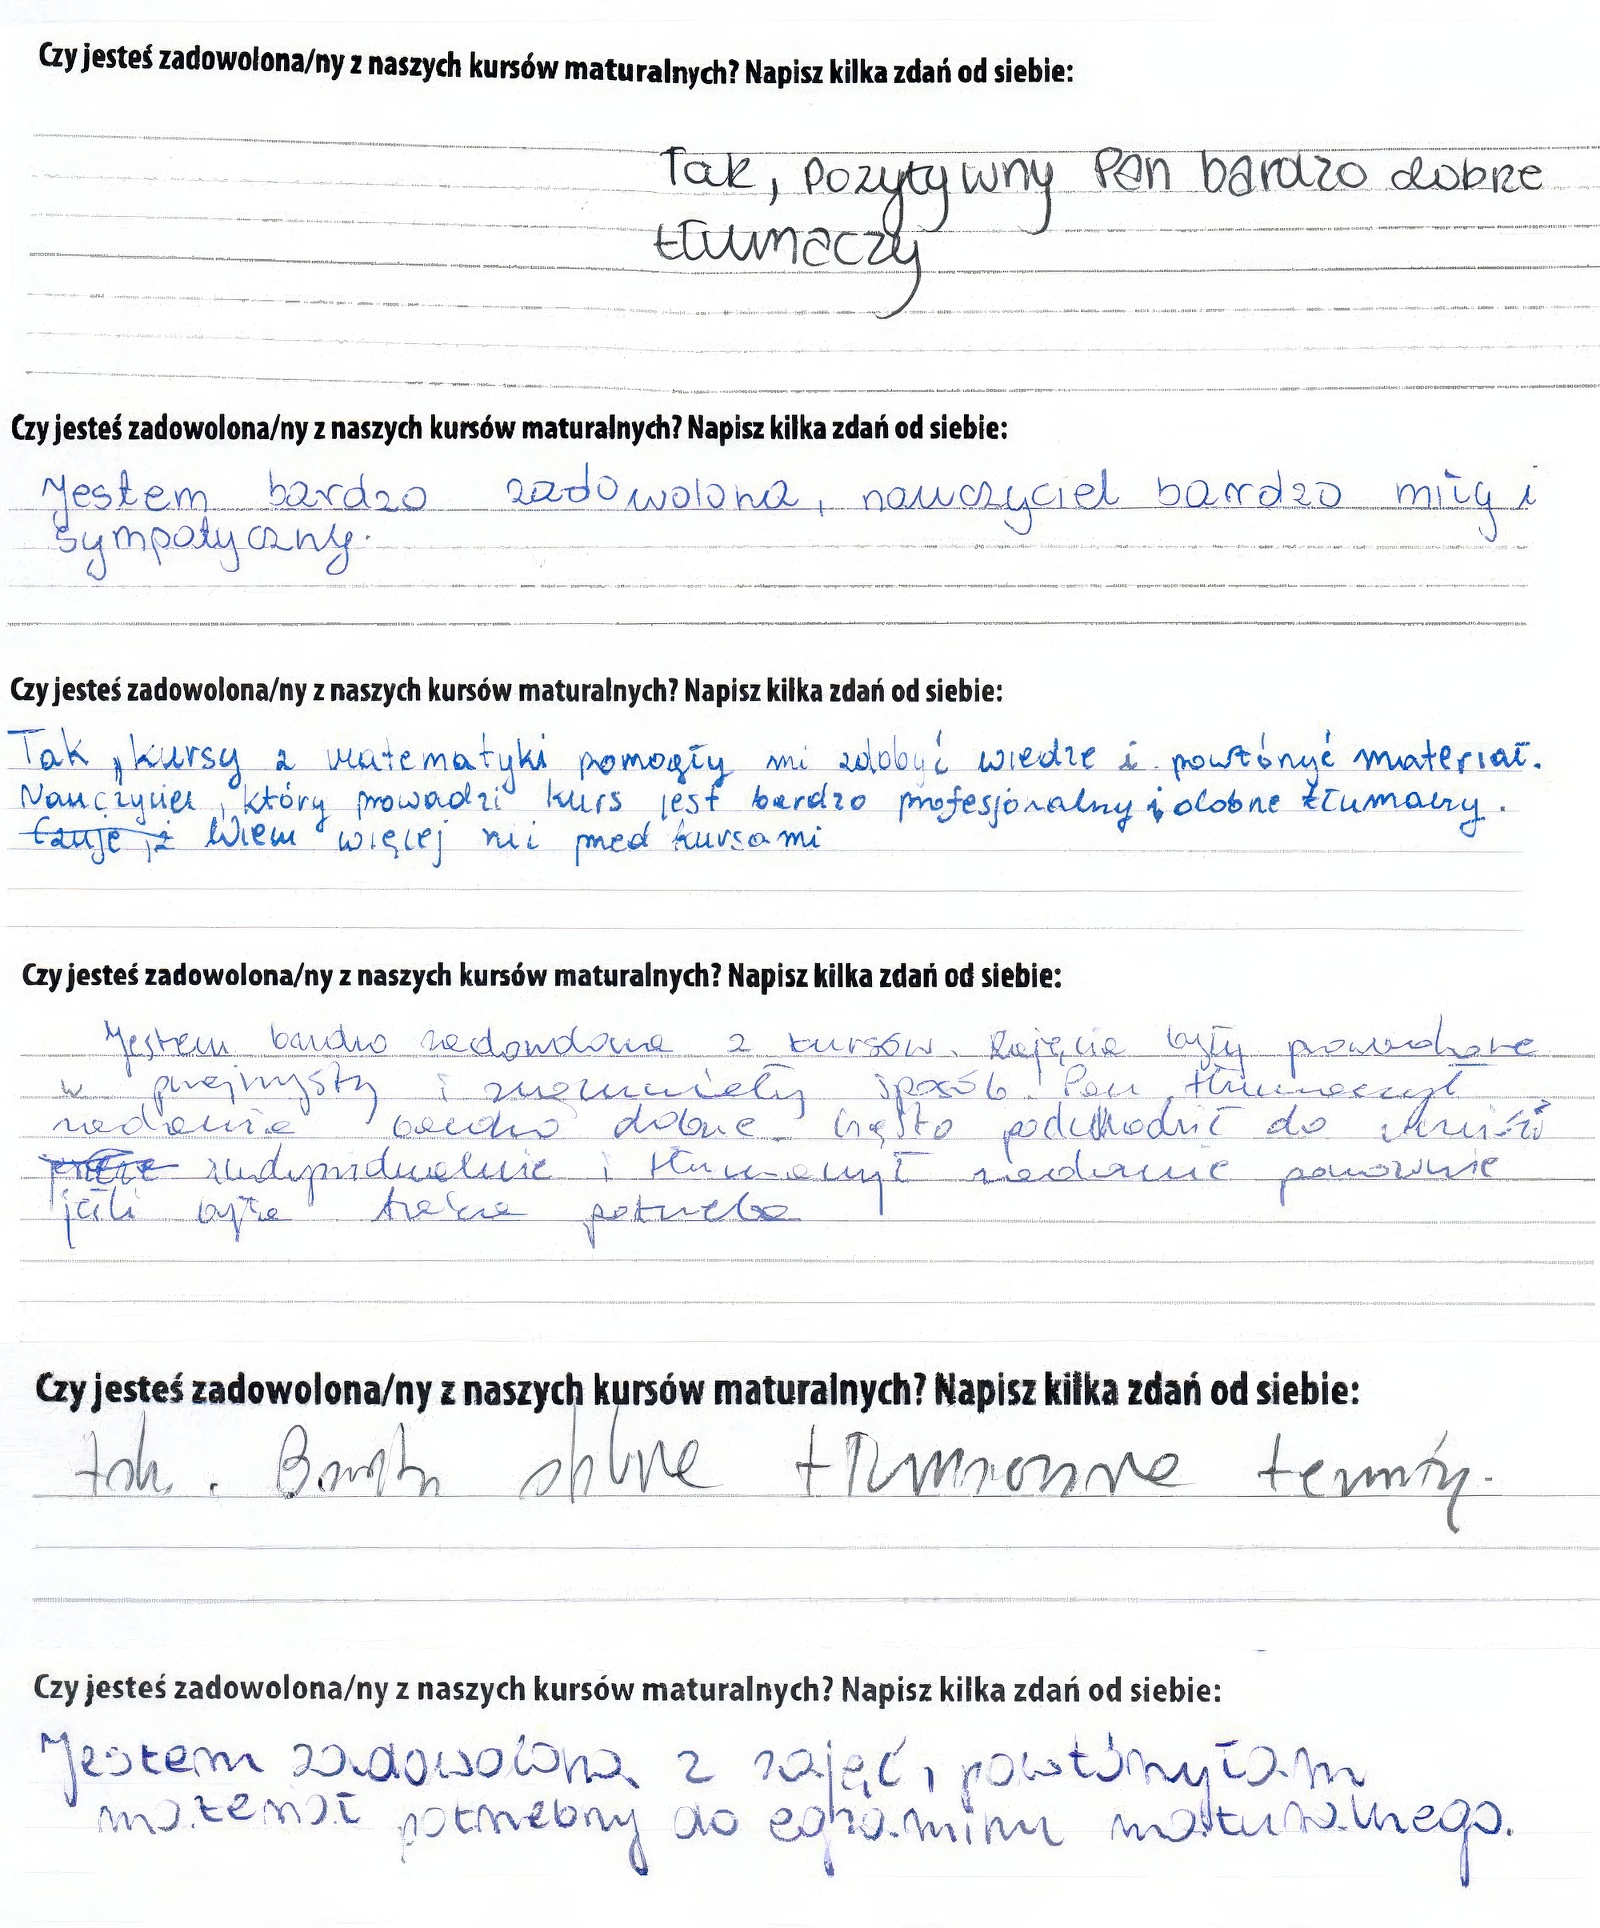 Czy jesteś zadowolona/ny z naszych kursów maturalnych? Napisz kilka zdań od siebie:
Tak, pozytywny Pan bardzo dobrze
tłumaczy
Czy jesteś zadowolona/ny z naszych kursów maturalnych? Napisz kilka zdań od siebie:
Jestem bardzo zadowolona, nauczyciel bardzo miły i
sympatyczny.
Czy jesteś zadowolona/ny z naszych kursów maturalnych? Napisz kilka zdań od siebie:
Tak, kursy z matematyki pomogły mi zdobyć wiedze i powtórzyć materiał.
Nauczyciel, który prowadzi kurs jest bardzo profesjonalny i dobrze tłumaczy.
Wiem więcej niż przed kursami
Czy jesteś zadowolona/ny z naszych kursów maturalnych? Napisz kilka zdań od siebie:
Jestem bardzo zadowolona z kursów. Zajęcia były prowadzone
w przejrzysty i zrozumiały sposób. Pan tłumaczył
zadania bardzo dobrze. Często podchodził do
indywidualnie i tłumaczył zadanie ponownie
jeśli była taka potrzeba
Czy jesteś zadowolona/ny z naszych kursów maturalnych? Napisz kilka zdań od siebie:
tak. Bardzo dobrze tłumaczone tematy.
Czy jesteś zadowolona/ny z naszych kursów maturalnych? Napisz kilka zdań od siebie:
Jestem zadowolona z zajęć, powtórzyłam
materiał potrzebny do egzaminu maturalnego.